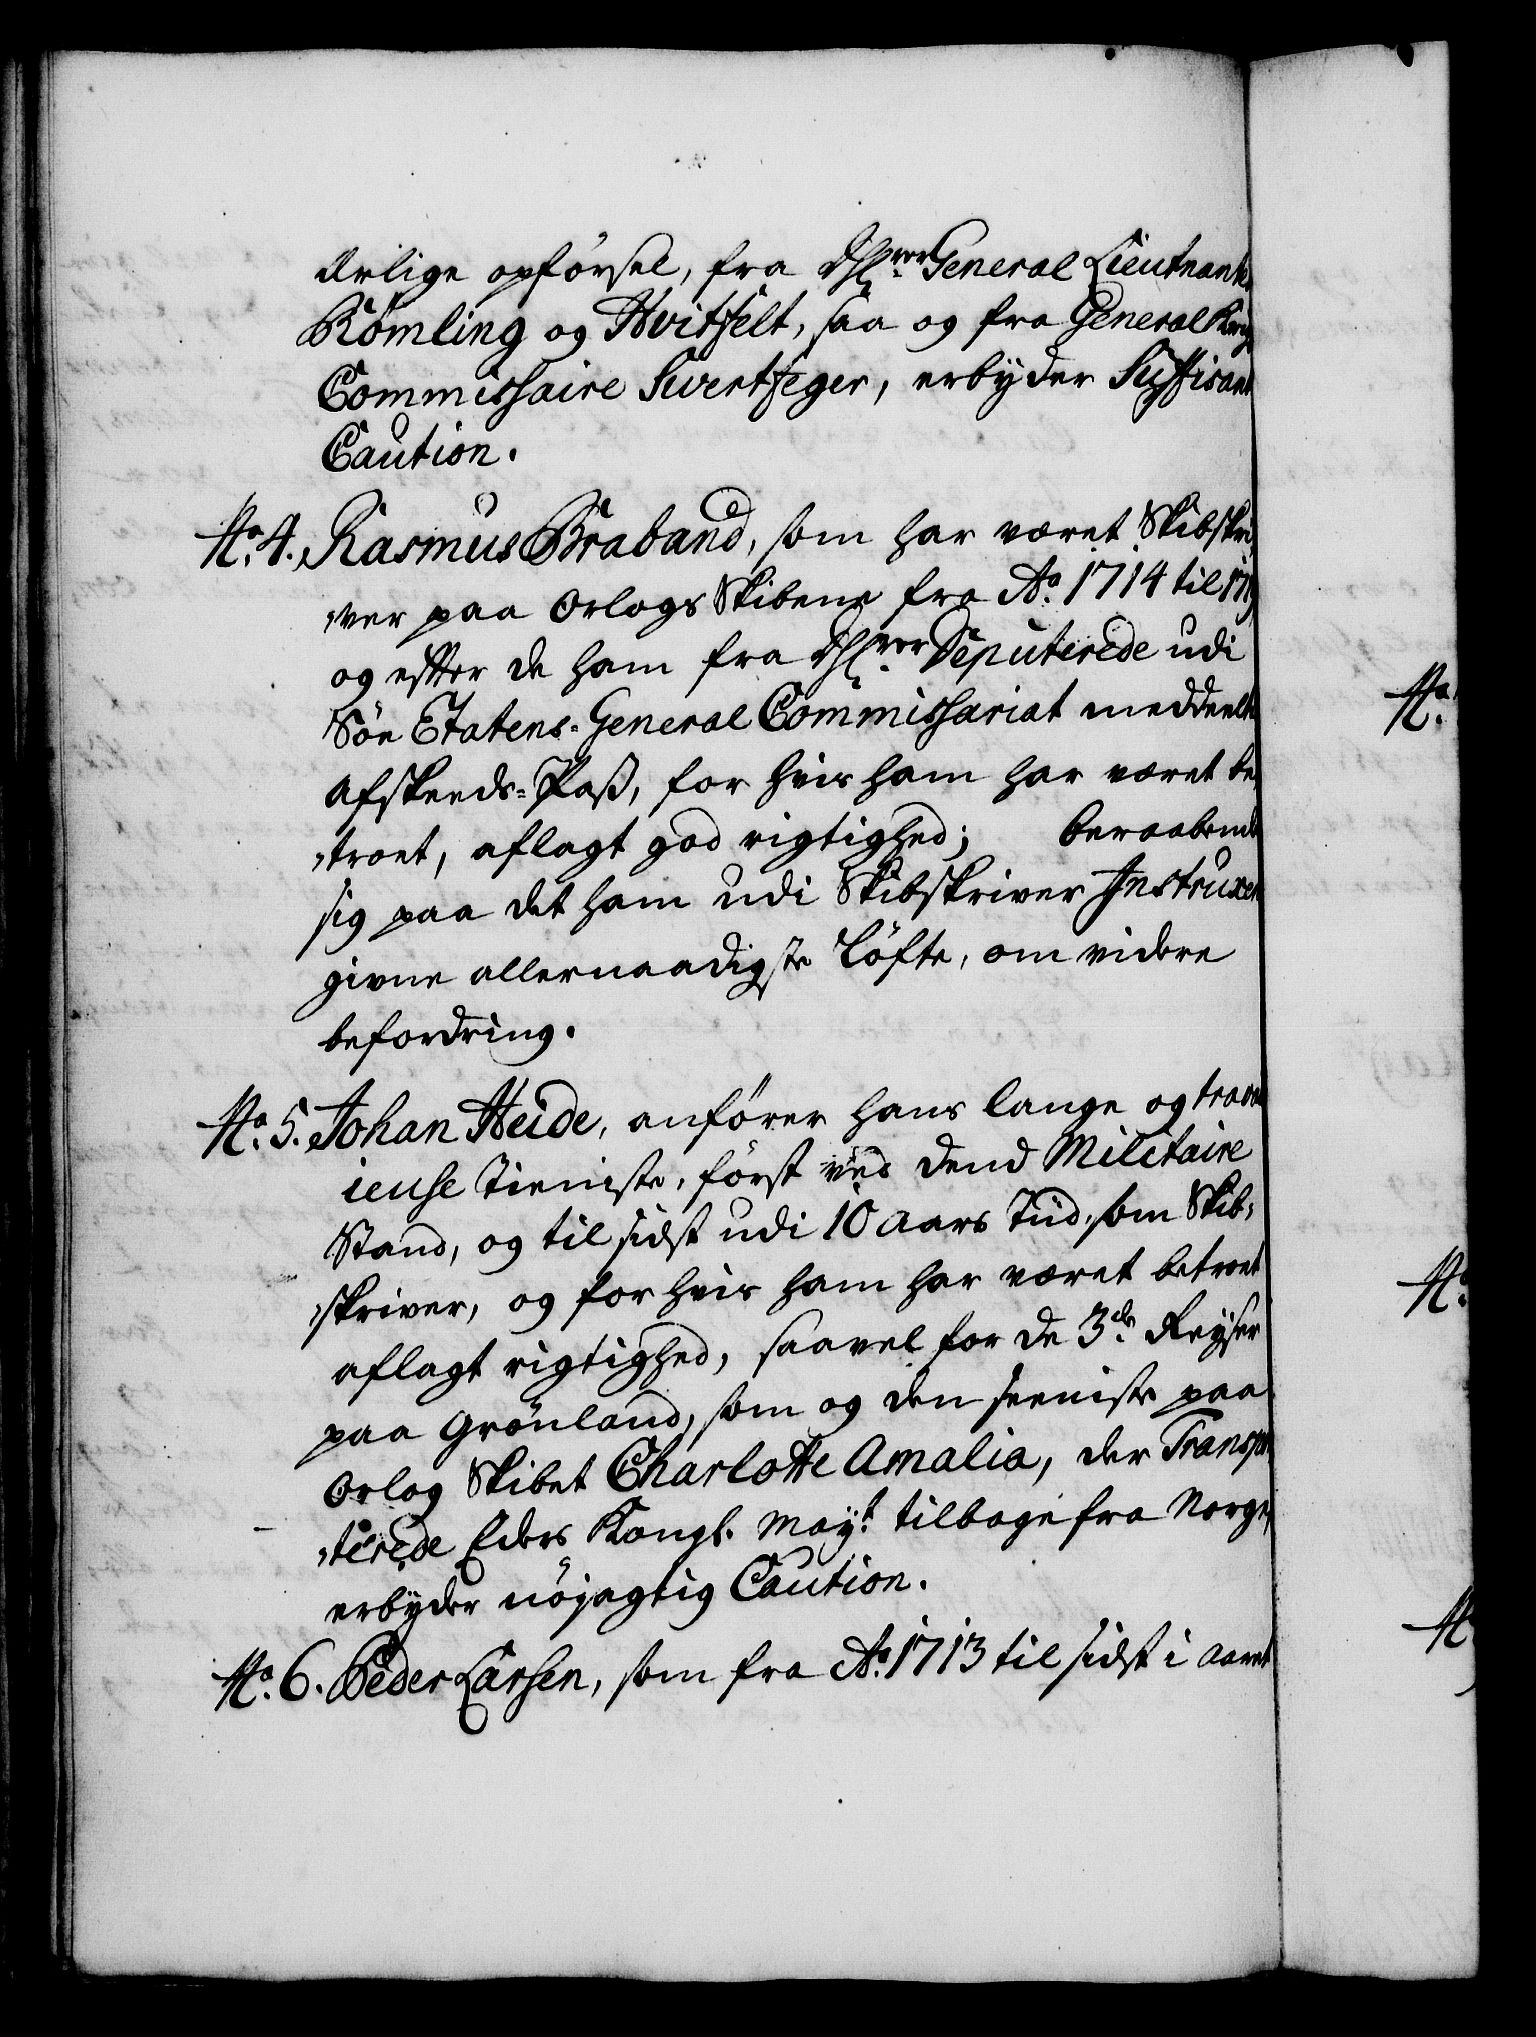 ærlige opførsel, fra dhrr. General Lieutnanter
Römling og Hvitfelt, saa og fra General Krigs
Commissaire Sivertseger, erbyder Suffisant
Caution.
No. 4. Rasmus Braband, som har været Skibskri-
-ver paa Orlogs Skibene fra Ao. 1714 til
og efter de ham fra dhrr. Deputerede udi
Söe Etatens General Commissariat meddeelte
Afskeeds-Pass, for hvis ham har været be
-troet, aflagt god rigtighed; beraabende
sig paa det ham udi Skibskriver Instruxen
givne allernaadigste Løfte, om videre
befordring.
No. 5. Johan Heide, anfører hans lange og trava
ieuse Tieniste, først ved dend Militaire
Stand, og til sidst udi 10 Aars Tiid, som Skib-
-skriver, og for hvis ham har været betroet
aflagt rigtighed, saavel for de 3de Reyser
paa Grönland, som og den seeniste paa
Orlog Skibet Charlotte Amalia, der Transpor
-terede Eders Kongl. Mayt. tilbage fra Norge,
erbyder nöjagtig Caution.
No. 6. Peder Larsen, som fra Ao. 1713 til sidst i Aaret
No.
No.
No.